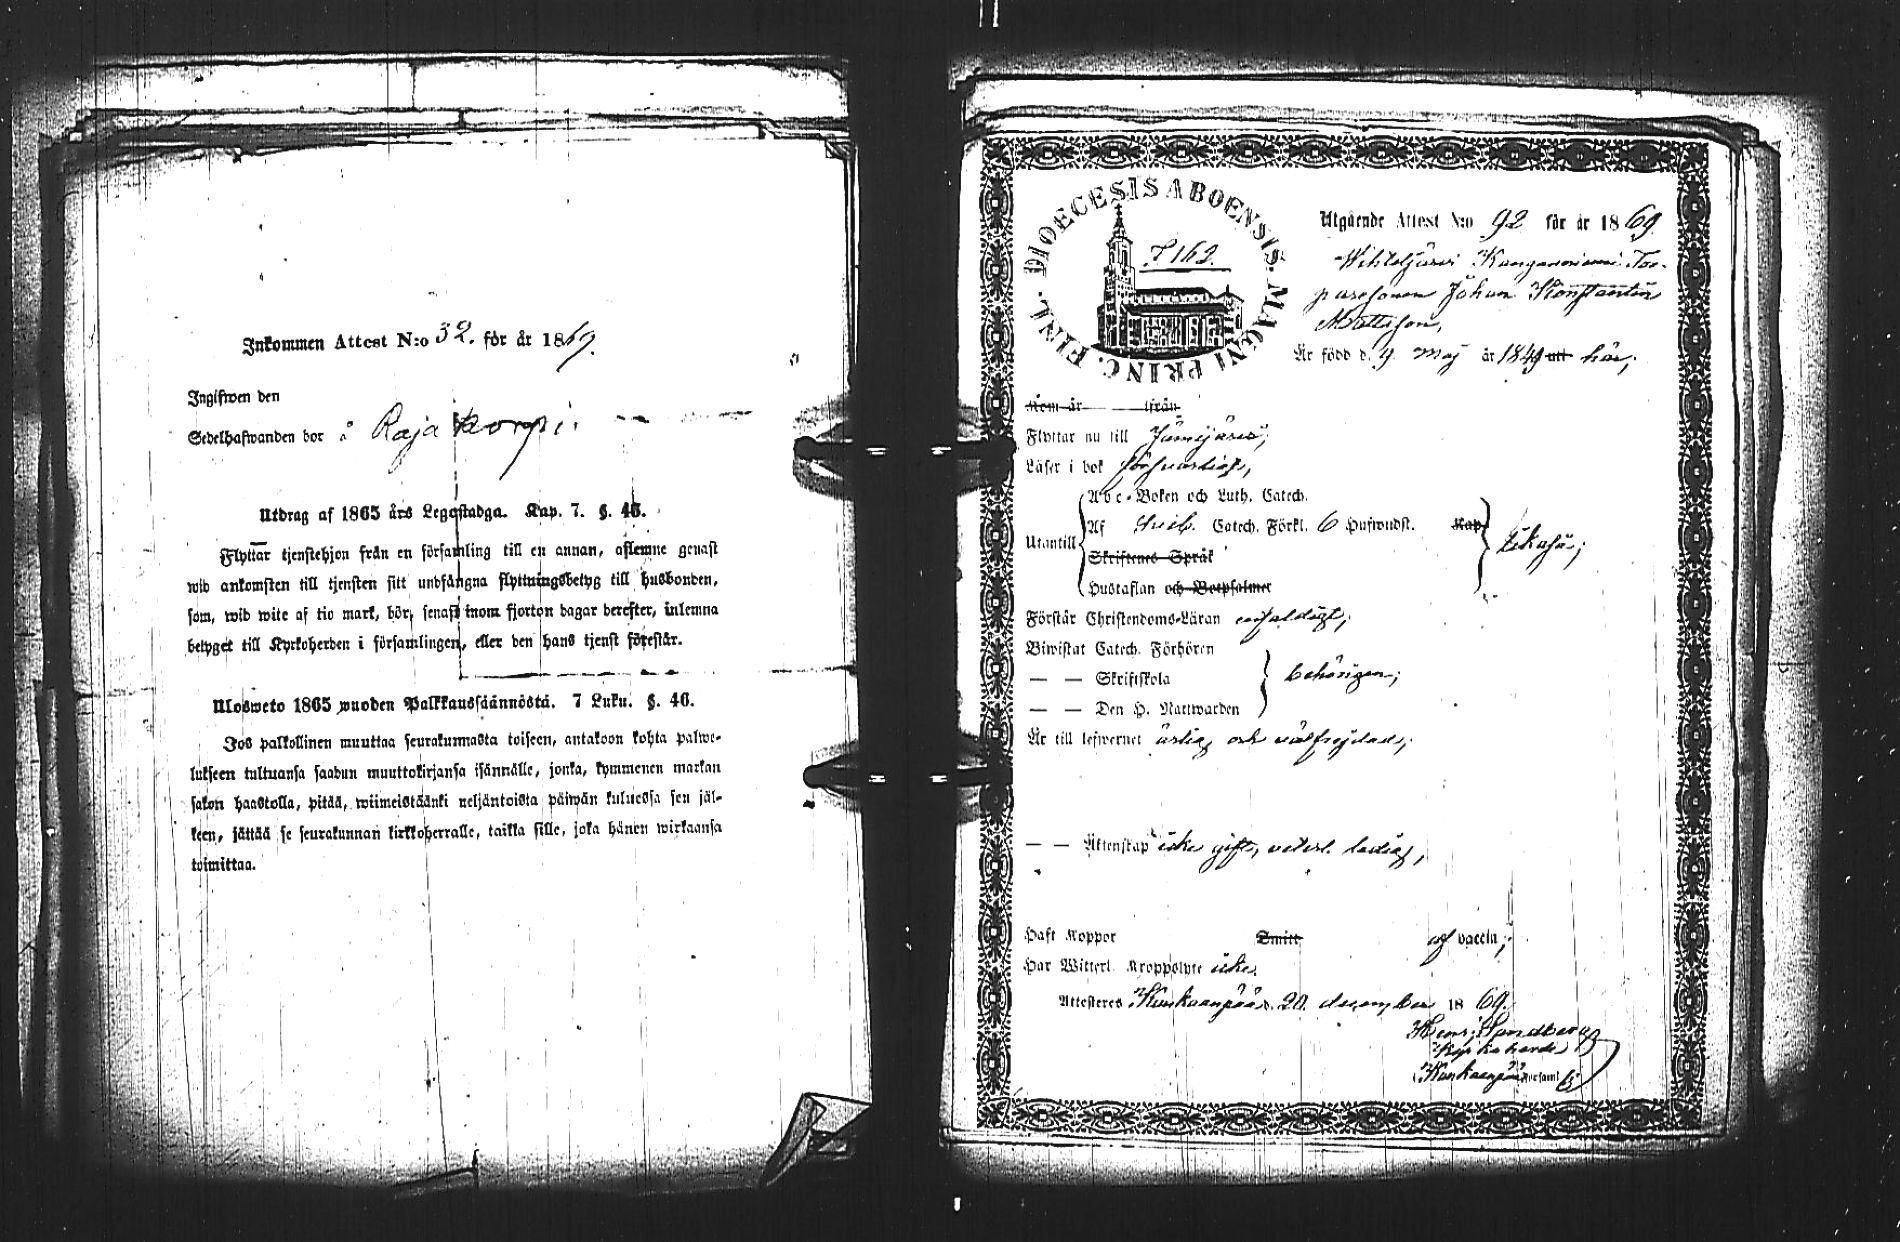 Inkommen Attest N:o 32. för år 1869.
Ingifwen den
Sedelhafwanden bor å Rajakorpi.
Utdrag af 1865 års Legostadga. Kap. 7. §. 46.
Flyttar tjenstehjon från en församling till en annan, aflemne genast
wid ankomsten till tjensten sitt undfångna flyttningsbetyg till husbonden,
som, wid wite af tio mark, bör, senast inom fjorton dagar derefter, inlemna
betyget till Kyrkoherden i församlingen, eller den hans tjenst förestår.
Ulosweto 1865 wuoden Palkkaussäännöstä. 7 Luku. §. 46.
Jos palkollinen muuttaa seurakunnasta toiseen, antakoon kohta palwe-
lukseen tultuansa saadun muuttokirjansa isännälle, jonka, kymmenen markan
sakon haastolla, pitää, wiimeistäänki neljäntoista päiwän kuluessa sen jäl-
keen, jättää se seurakunnan kirkkoherralle, taikka sille, joka hänen wirkaansa
toimittaa.
DIOECESIS ABOENSIS. MAGNI PRINC. FINL.
7162.
Utgående Attest N:o 92 för år 1869
Wihteljärvi Kangasniemi Tor-
paresonen Johan Konstantin
Mattsson,
Är född d. 9 Maj år 1849 att här;
Kom år ifrån
Flyttar nu till Jämijärvi;
Läser i bok försvarligt,
Abc-Boken och Luth. Catech.
Utantill Af Sveb. Catech. Förkl. 6 Hufwudst. Kap
Skriftenes Språk
Hustaflan och Botpsalmer
Förstår Christendoms-Läran enfaldigt;
Biwistat Catech. Förhören
— — Skriftskola behörigen;
— — Den H. Nattwarden
Är till lefwernet ärlig och välfrejdad;
— — Äktenskap icke gift, veterl. ledig,
Haft Koppor Smitt af vaccin;
Har Witterl. Kroppslyte icke.
Attesteras Kankaanpää d. 20 december 1869.
Henr. Sandberg
Kyrkoherde
Kankaanpää församl.